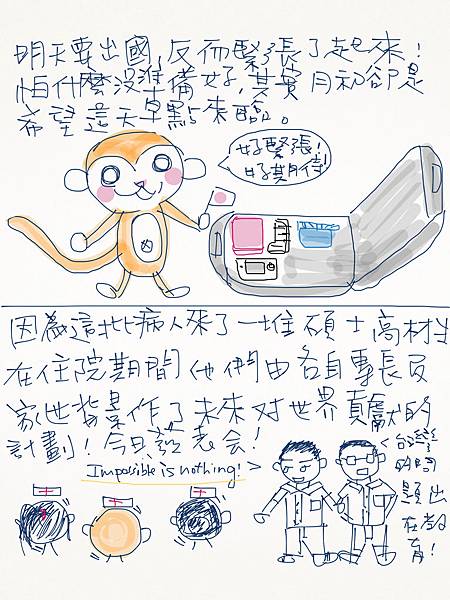 明天要出國,反而緊張了起來!
怕什麼沒準備好,其實月和卻是
希望這天早點來臨。
好緊張!
好期待
因為這批病人來了一堆碩士高材生
在住院期間他們由各自專長及
家世背景作了未來对世界貢獻的
計劃!今日發表会!
Impossible is nothing!
台灣
的問
題出
在教
育!